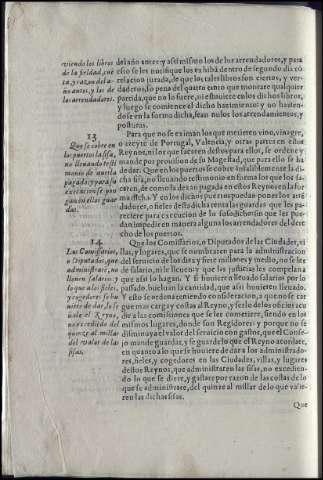 viendo los libros
de la fieldad, cuē
ta, y razon del a-
ño antes, y las de
los arrendadores.
del año antes: y assi mismo los de los arrendadores, y para
eso se les notifique los exhibā dentro de segundo dia cō
relacion jurada, de que los tales libros son ciertos, y ver-
daderos, so pena del quatro tanto que montare qualquier
partida, que no lo fuere, si estuuiere en los dichos libros,
y luego se comience el dicho hazimiento: y no hazien-
dose en la forma dicha, sean nulos los arrendamientos, y
posturas.
13
Que se cobre en
los puertos la sisa,
no lleuando testi
monio de auerla
pagado; y para la
execucion se pō-
gan en ellas guar
das.
Para que no se eximan los que metieren vino, vinagre,
o azeyte de Portugal, Valencia, y otras partes en estos
Reynos, ni los que sacaren destos para ellos, se ordene y
mande por prouision de su Magestad, que para ello se ha
de dar. Que en los puertos se cobre infaliblemente la di-
cha sisa, no lleuando testimonio en forma los que los sa-
caren, de como la dexan pagada en estos Reynos en la for
ma dicha. Y en los dichos puertos puedan poner los arrē-
dadores, o fieles de los dichos cerca las guardas que les pa-
reciere para execucion de lo susodicho: sin que les pue-
dan impedir en manera alguna los arrendadores del dere
cho de los puertos.
14
Los Comissarios,
o Diputados, que
administrarē, no
lleuen salarios.
lo que a los fieles,
y cogedores se hu
uiere de dar, se se
ñale el Reyno,
no excediendo del
quinze al millar
del valor de las
sisas.
Que los Comissarios, o Diputados de las Ciudades, vi
llas, y lugares, que se nombraren para la administracion
del seruicio de los diez y siete millones y medio, no se lleue
de salarios, ni le lleuen: y que las justicias les compelan a
que assi lo hagan. Y si huuieren lleuado salarios por lo
passado, bueluan la cantidad, que assi huuieren lleuado.
Y esto se ordena teniendo consideracion, a que no se car
guen mas cargas y costas al Reyno, y se les de los oficios acu
dir a las comissiones que se les cometiere, siendo en los
mismos lugares, donde son Regidores: y porque no se
disminuya el valor del seruicio con gastos, que el Consejo
mande guardar, y se guarde lo que el Reyno acordare,
en quanto a lo que se huuiere de dar a los administrado-
res, fieles, y cogedores en las Ciudades, villas, y lugares
destos Reynos, que administraren las sisas, no excedien-
do lo que se diere, y gastare por razon de las costas de lo
que se administrare, del quinze al millar de lo que valie-
ren las dichas sisas.
Que